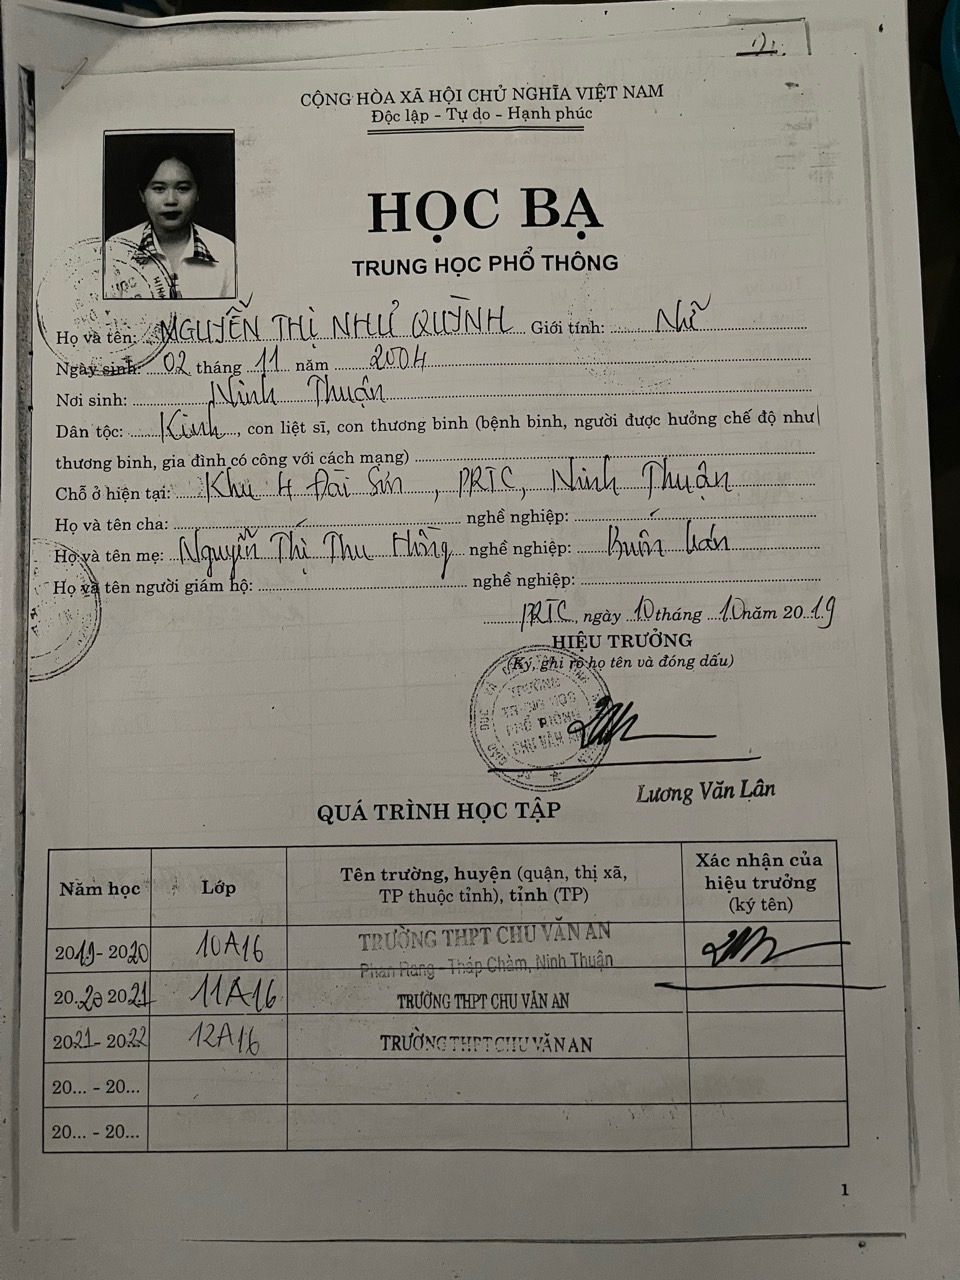 CỘNG HÒA XÃ HỘI CHỦ NGHĨA VIỆT NAM
Độc lập - Tự do - Hạnh phúc
HỌC BẠ
TRUNG HỌC PHỔ THÔNG
Họ và tên: NGUYỄN THỊ NHƯ QUỲNH Giới tính: Nữ
Ngày sinh: 02 tháng 11 năm 2004
Nơi sinh: Ninh Thuận
Dân tộc: Kinh, con liệt sĩ, con thương binh (bệnh binh, người được hưởng chế độ như
thương binh, gia đình có công với cách mạng)
Chỗ ở hiện tại: Khu 4 Đài Sơn, PRTC, Ninh Thuận
Họ và tên cha: nghề nghiệp:
Họ và tên mẹ: Nguyễn Thị Thu Hồng nghề nghiệp: Buôn bán
Họ và tên người giám hộ: nghề nghiệp:
PRTC, ngày 10 tháng 10 năm 2019
HIỆU TRƯỞNG
(Ký, ghi rõ họ tên và đóng dấu)
TRƯỜNG
TRUNG HỌC
PHỔ THÔNG
CHU VĂN AN
Lương Văn Lân
QUÁ TRÌNH HỌC TẬP
Năm học Lớp Tên trường, huyện (quận, thị xã, TP thuộc tỉnh), tỉnh (TP) Xác nhận của hiệu trưởng (ký tên)
2019 - 2020 10A16 TRƯỜNG THPT CHU VĂN AN
Phan Rang - Tháp Chàm, Ninh Thuận
2020 2021 11A16 TRƯỜNG THPT CHU VĂN AN
2021 - 2022 12A16 TRƯỜNG THPT CHU VĂN AN
20... - 20...
20... - 20...
1